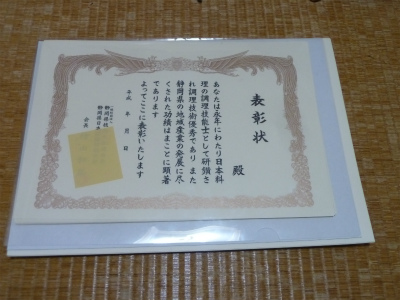 表彰状
殿
あなたは永年にわたり日本料
理の調理技能士として研鑚さ
れ調理技術優秀であり また
静岡県の地域産業の発展に尽
くされた功績はまことに顕著
であります
よってここに表彰いたします
平成 年 月 日
会長